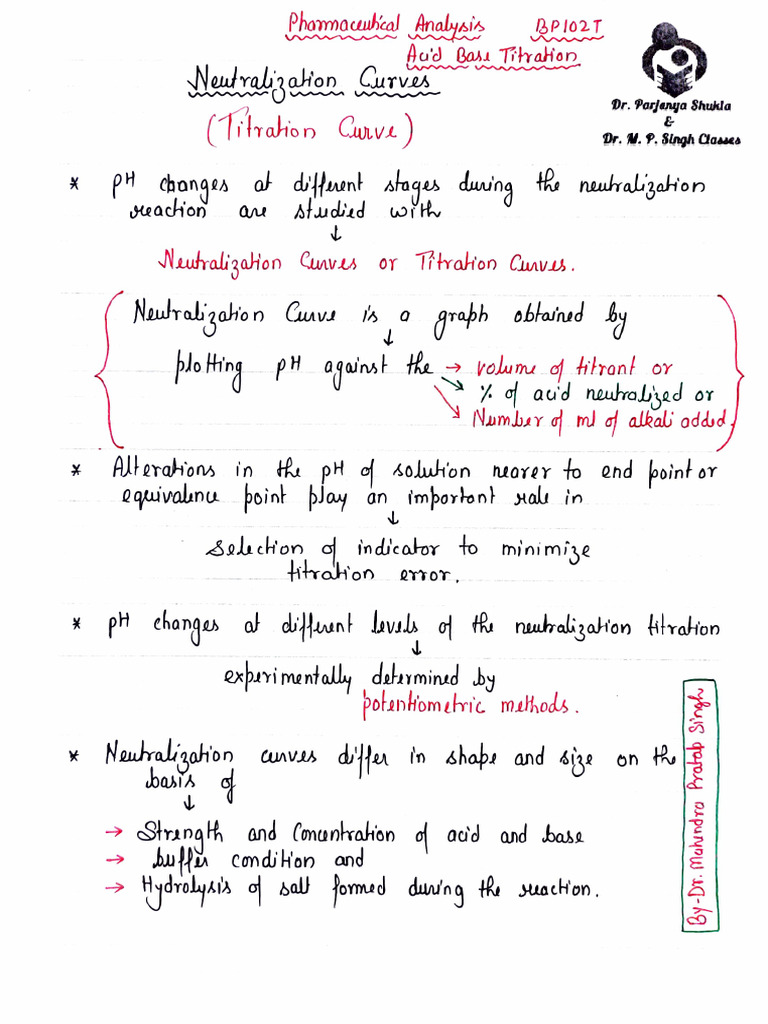 Pharmaceutical Analysis BP102T
Acid Base Titration
Neutralization Curves
(Titration Curve)
Dr. Parjanya Shukla
&
Dr. M. P. Singh Classes
* pH changes at different stages during the neutralization
reaction are studied with
↓
Neutralization Curves or Titration Curves.
Neutralization Curve is a graph obtained by
↓
plotting pH against the → volume of titrant or
→ % of acid neutralized or
→ Number of ml of alkali added.
* Alterations in the pH of solution nearer to end point or
equivalence point play an important role in
↓
selection of indicator to minimize
titration error.
* pH changes at different levels of the neutralization titration
↓
experimentally determined by
potentiometric methods.
* Neutralization curves differ in shape and size on the
basis of
↓
→ Strength and Concentration of acid and base
→ buffer condition and
→ Hydrolysis of salt formed during the reaction.
By-Dr. Mahendra Pratap Singh